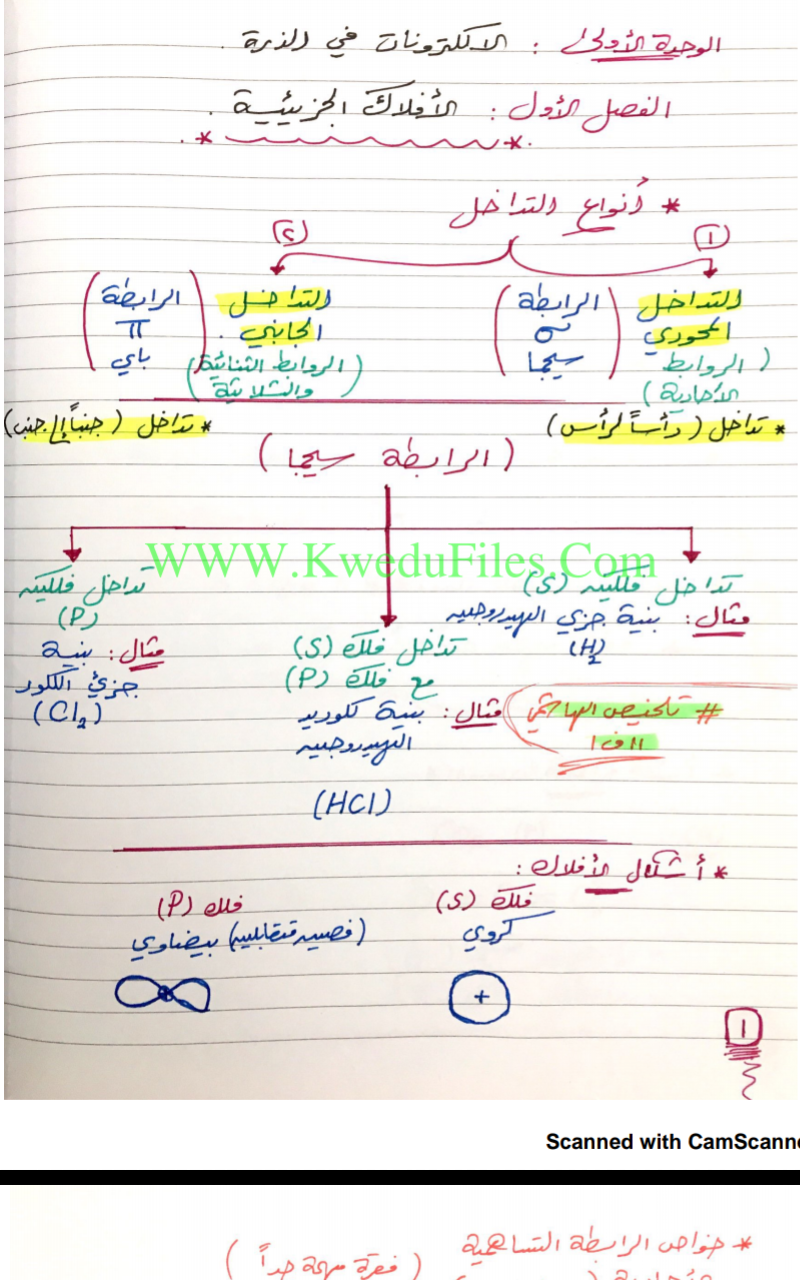 الوحدة الأولى : الالكترونات في الذرة .
الفصل الأول : الأفلاك الجزيئية .
* أنواع التداخل
١
٢
التداخل المحوري
(الرابطة σ سيجما)
(الروابط الأحادية)
* تداخل (رأساً لرأس)
التداخل الجانبي .
(الرابطة π باي)
(الروابط الثنائية والثلاثية)
* تداخل (جنباً إلى جنب)
(الرابطة سيجما)
WWW.KweduFiles.Com
تداخل فلكين (S)
مثال : بنية جزئ الهيدروجين
(H2)
تداخل فلك (S)
مع فلك (P)
مثال : بنية كلوريد
الهيدروجين
(HCl)
تداخل فلكين
(P)
مثال : بنية
جزئ الكلور
(Cl2)
# تلخيص الهاجمي
١١ف١
* أشكال الأفلاك :
فلك (S)
كروي
+
فلك (P)
(فصين متقابلين) بيضاوي
١
Scanned with CamScanne
* خواص الرابطة التساهمية
(فقرة مهمة جداً)